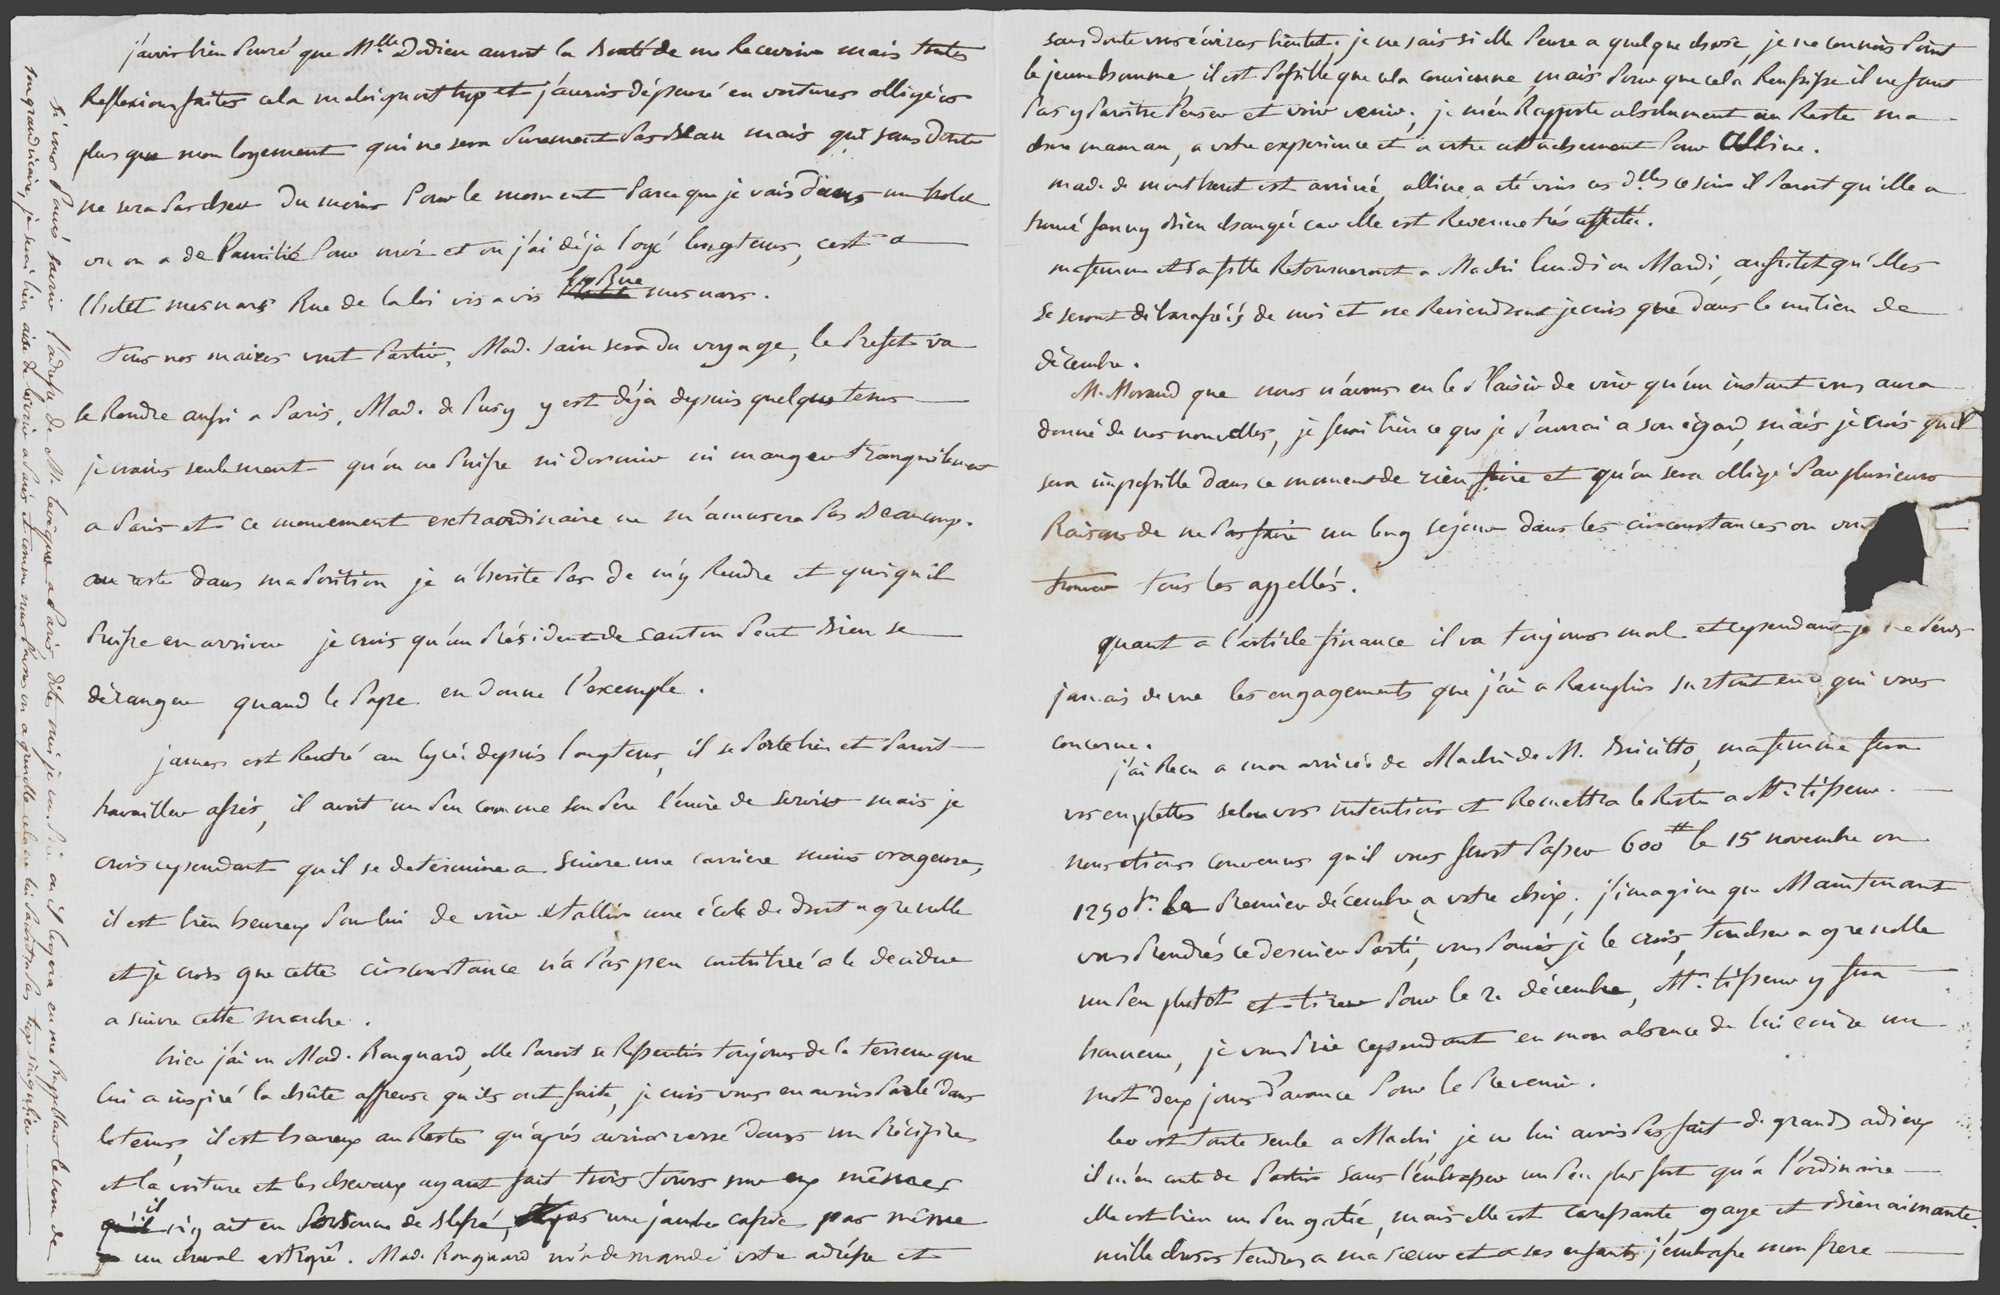 j'avois bien pensé que Mlle Dodieu auroit la bonté de me recevoir mais toutes
Reflexions faites cela m'eloignoit trop et j'aurois dépensé en voitures obligées
plus que mon logement qui ne sera surement pas beau mais qui sans doute
ne sera pas cher du moins pour le moment parce que je vais dans un hotel
ou on a de l'amitié pour moi et ou j'ai déja logé longtems, c'est a
l'hotel mesnars Rue de la loi vis a vis la Rue mesnars.
Tous nos maires vont partir, Mad. sain sera du voyage, le Prefet va
se Rendre aussi a Paris, Mad. de Pusy y est déja depuis quelque tems
je crains seulement qu'on ne puisse ni dormir ni manger tranquilement
a Paris et ce mouvement extraordinaire ne m'amusera pas beaucoup.
au reste dans ma position je n'hesite pas de m'y Rendre et quoiqu'il
puisse en arriver je crois qu'un Président de canton peut bien se
déranger quand le Pape en donne l'exemple.
james est Rentré au lycée depuis longtems, il se porte bien et paroit
travailler assés, il avoit un peu comme son pere l'envie de servir mais je
crois cependant qu'il se determinera a suivre une carriere moins orageuse,
il est bien heureux pour lui de voir etablir une école de droit a grenoble
et je crois que cette circonstance n'a pas peu contribué a le decider
a suivre cette marche.
hier j'ai vu Mad. Rouguard, elle paroit se Ressentir toujours de la terreur que
lui a inspiré la chûte affreuse qu'ils ont faite, je crois vous en avoir parlé dans
le tems, il est heureux au Reste qu'après avoir versé dans un Précipice
et la voiture et les chevaux ayant fait trois tours sur eux mêmes
il n'y ait eu personne de blessé, pas une jambe cassée pas même
un cheval estropié. Mad. Rouguard m'a demandé votre adresse et
si vous pouvés savoir l'adresse de M. leveque a Paris dites moi je vous prie ou il logera en me Rappellant le nom de
son grand vicaire, je serai bien aise de le voir a Paris et comme nous l'avons vu a grenoble cela ne lui paroitra pas trop singulier
sans doute vous écrira bientot; je ne sais si elle pense a quelque chose, je ne connois point
le jeune homme il est possible que cela convienne, mais pour que cela Reussisse il ne faut
pas y paroitre penser et voir venir; je m'en Rapporte absolument au Reste ma
chere maman, a votre experience et a votre attachement pour Albine.
mad. de montbrut est arrivée, albine a été voir ces dlles ce soir il paroit qu'elle a
trouvé fanny bien changée car elle est Revenue très affectée.
ma femme et sa fille Retourneront a Machi lundi ou Mardi, aussitot qu'elles
se seront débarassées de moi et ne Reviendront je crois que dans le milieu de
décembre.
M. Morand que nous n'avons eu le plaisir de voir qu'un instant vous aura
donné de nos nouvelles, je ferai bien ce que je pourrai a son égard, mais je crois qu'il
sera impossible dans ce moment de rien faire et qu'on sera obligé par plusieurs
Raisons de ne pas faire un long séjour dans les circonstances ou vont
trouver tous les appellés.
quant a l'article finance il va toujours mal et cependant je ne perds
jamais de vue les engagements que j'ai a Remplir surtout en ce qui vous
concerne.
j'ai Recu a mon arrivée de Machi de M. Bricitto, ma femme fera
vos emplettes selon vos intentions et Remettra le Reste a Mr tisseur.
nous etions convenus qu'il vous feroit passer 600# le 15 novembre ou
1250 fr. le Premier décembre a votre choix; j'imagine que Maintenant
vous Prendrés ce dernier parti, vous pouvés je le crois, toucher a grenoble
un peu plutot et tirer pour le 2 décembre, Mr tisseur y fera
honneur, je vous prie cependant en mon absence de lui ecrire un
mot deux jours d'avance pour le Prevenir.
leo est toute seule a Machi, je ne lui avois pas fait de grands adieux
il m'en coute de partir sans l'embrasser un peu plus fort qu'a l'ordinaire
elle est bien un peu gatée, mais elle est caressante gaye et bien aimante.
mille choses tendres a ma soeur et a ses enfants j'embrasse mon frere